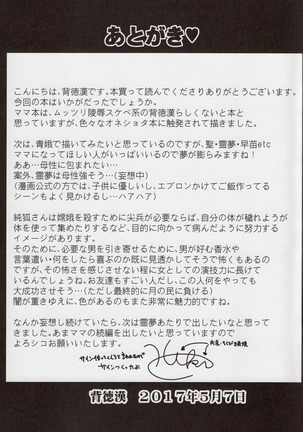 あとがき♥
こんにちは、背徳漢です。本買って読んでくださりありがとうございます。
今回の本はいかがだったでしょうか。
ママ本は、ムッツリ陵辱スケベ系の背徳漢らしくないと本と
思っていますが、色々なオネショタ本に触発されて描きました。
次は、青娥で描いてみたいと思っているのですが、聖・霊夢・早苗etc
ママになってほしい人がいっぱいいるので夢が膨らみますね!
ああ…母性に包まれたい…
案外、霊夢は母性強そう…(妄想中)
(漫画公式の方では、子供に優しいし、エプロンかけてご飯作ってる
シーンもよく見かけるし…ハアハア)
純狐さんは嫦娥を殺すために尖兵が必要ならば、自分の体が穢れようが
体を使って集めたりするなど、目的に向かって病んだように努力する
イメージがあります。
そのために、必要な男を引き寄せるために、男が好む香水や
言葉遣い・何をしたら喜ぶのか既に見透かしてそうで怖くもあるの
ですが、その怖さを感じさせない程に女としての演技力に長けて
いるんでしょうね。お友達もすごい人だし、この人何をやっても
大成功させそう…(ただし最終的に月の民に負ける)
闇が重きゆえに、色があるのもまた非常に魅力的ですね。
なんか妄想し続けていたら、次は霊夢あたりで出したいなと思って
きました。あまママの続編を出したいと思っていますので
よろシコお願いします。
背徳漢 2017年5月7日